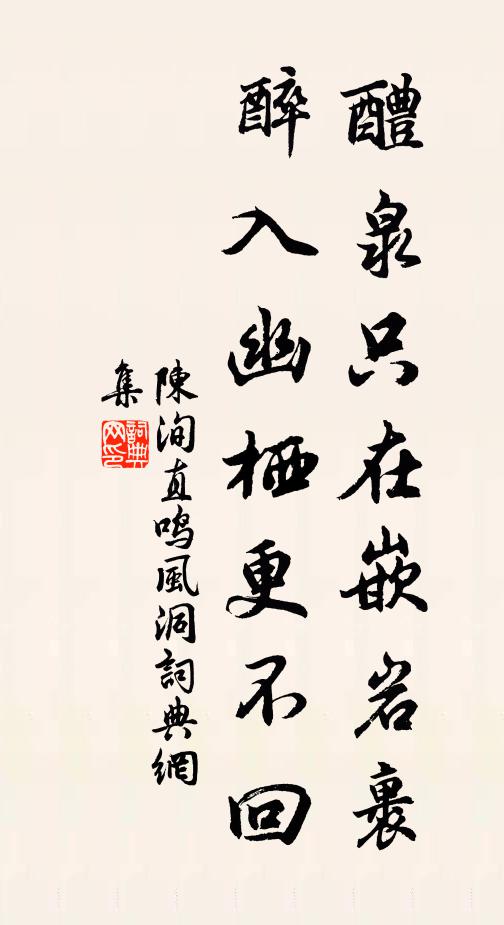 醴泉只在嵌岩裹
醉入幽栖更不回
陳洵直鳴風洞詞典網
集
詞典網印